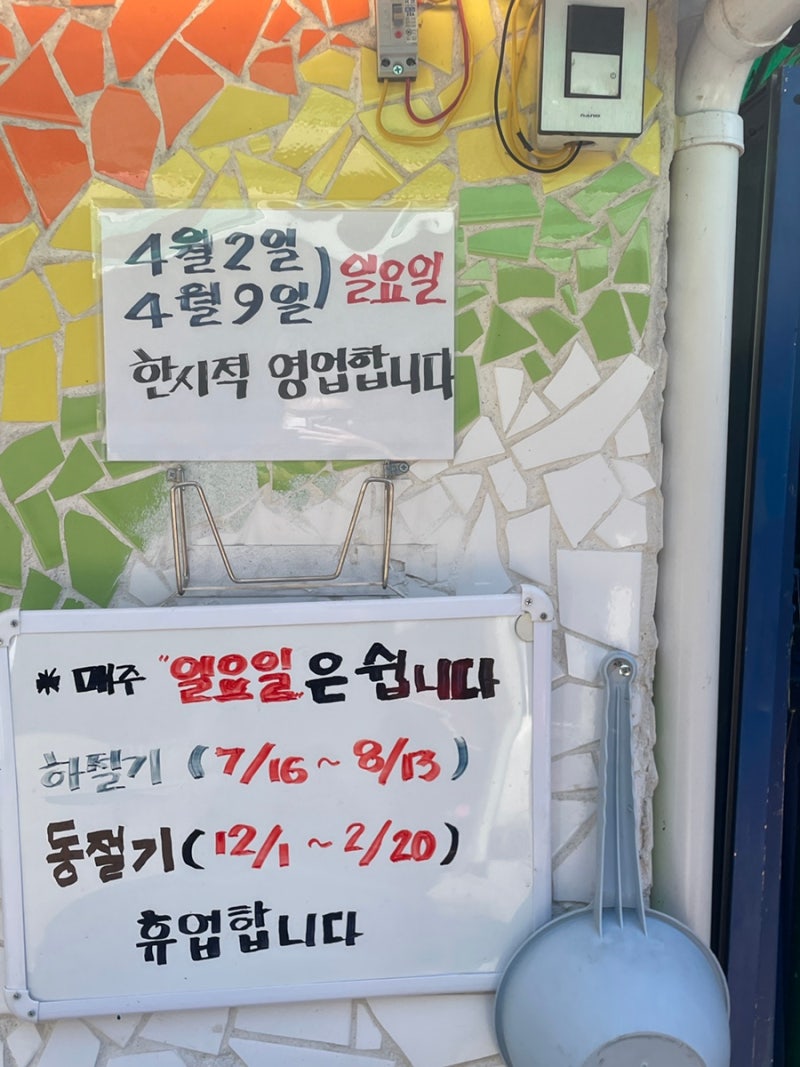 4월 2일
4월 9일 ) 일요일
한시적 영업합니다
* 매주 "일요일"은 쉽니다
하절기 (7/16 ~ 8/13)
동절기 (12/1 ~ 2/20)
휴업합니다